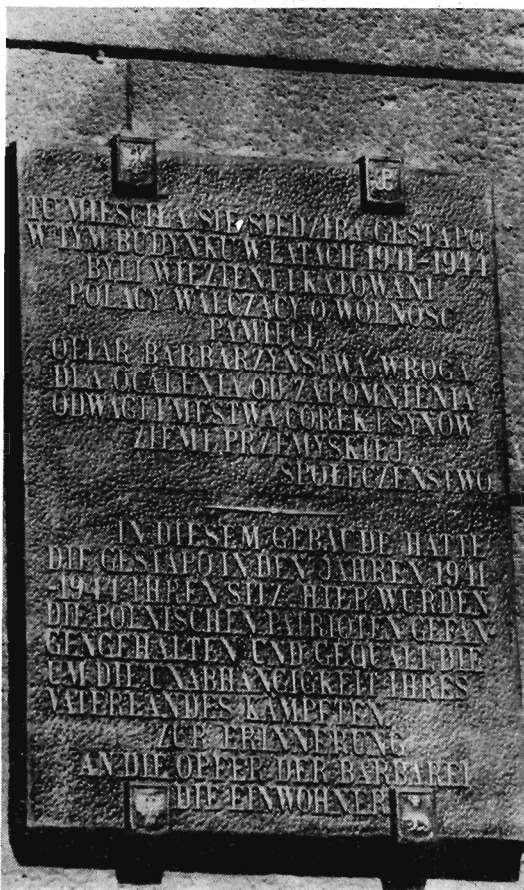 TU MIEŚCIŁA SIĘ SIEDZIBA GESTAPO.
W TYM BUDYNKU W LATACH 1941-1944
BYLI WIĘZIENI I KATOWANI
POLACY WALCZĄCY O WOLNOŚĆ
PAMIĘCI,
OFIAR BARBARZYŃSTWA WROGA
DLA OCALENIA OD ZAPOMNIENIA
ODWAGI I MĘSTWA CÓREK I SYNÓW
ZIEMI PRZEMYSKIEJ
SPOŁECZEŃSTWO
IN DIESEM GEBÄUDE HATTE
DIE GESTAPO IN DEN JAHREN 1941
-1944 IHREN SITZ. HIER WURDEN
DIE POLNISCHEN PATRIOTEN GEFAN-
GENGEHALTEN UND GEQUÄLT DIE
UM DIE UNABHÄNGIGKEIT IHRES
VATERLANDES KÄMPFTEN.
ZUR ERINNERUNG
AN DIE OPFER DER BARBAREI
DIE EINWOHNER